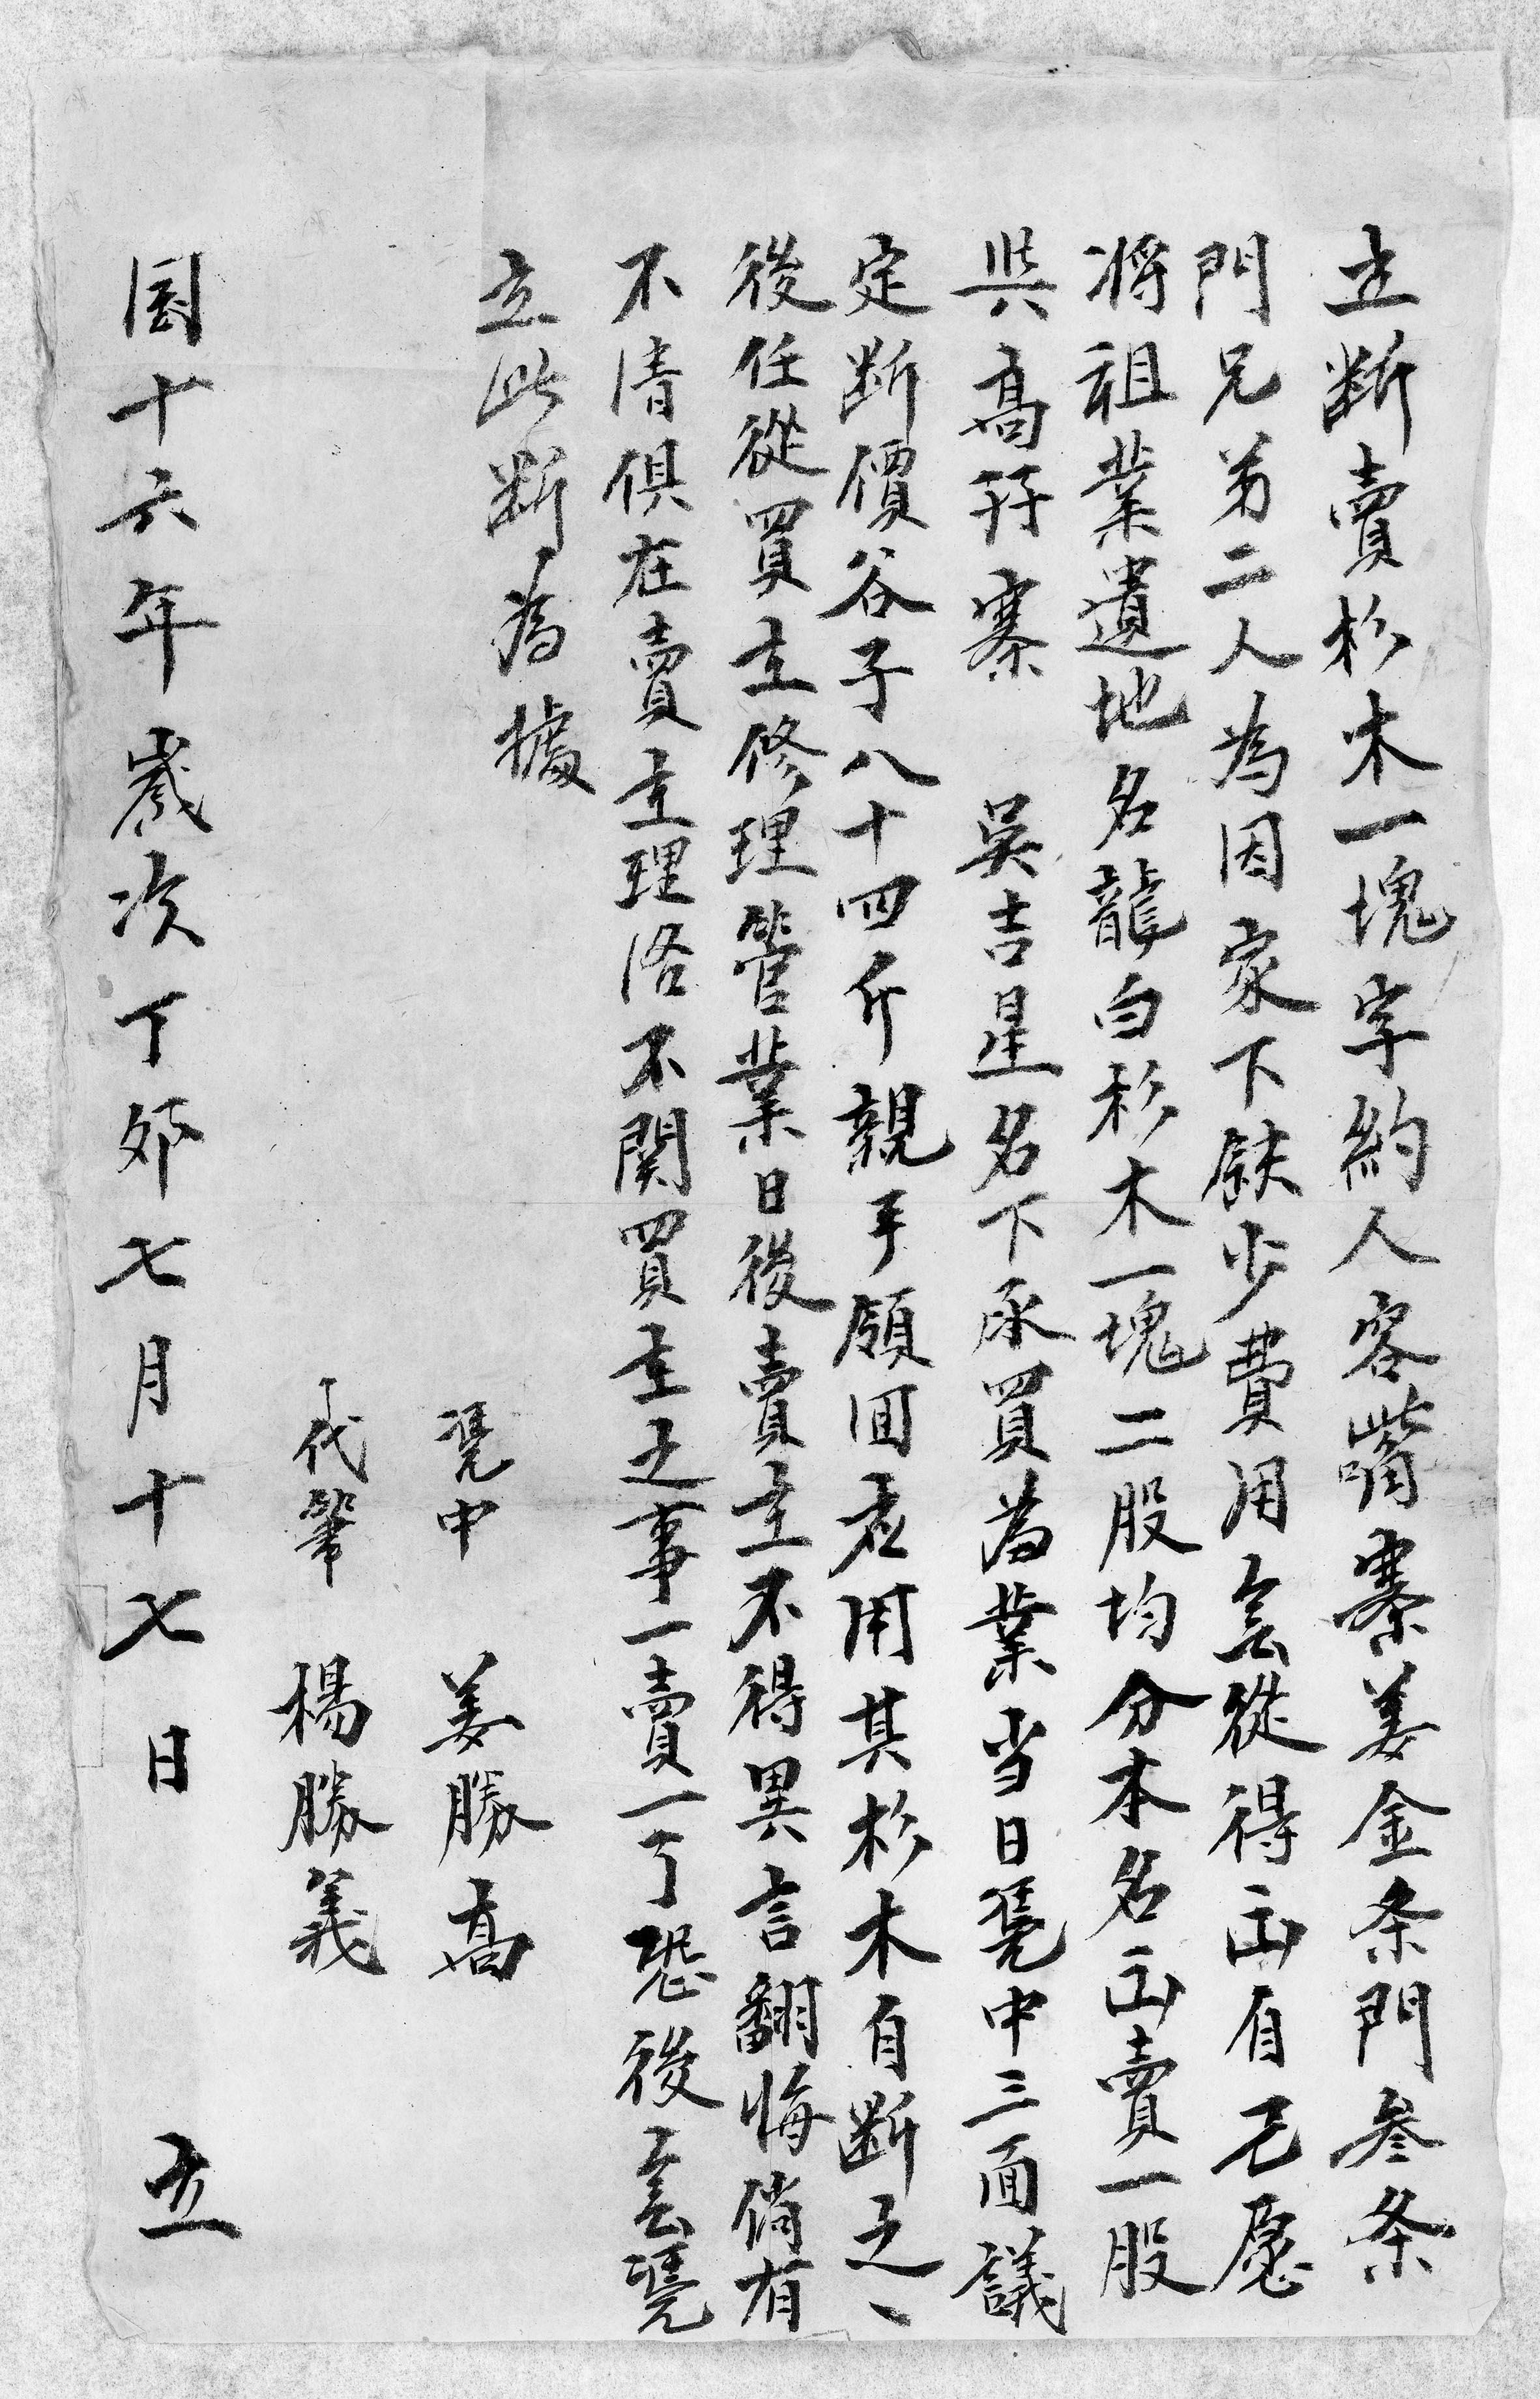 立断賣杉木一塊字約人容嘴寨姜金条門叁条
門兄弟二人為因家下缺少費用無從得出自己愿
将祖業遺地名龍白杉木一塊二股均分本名出賣一股
與高寨 吳吉星名下承買為業当日凴中三面議
定断價谷子八十四斤親手領回應用其杉木自断之丶
後任從買主修理管業日後賣主不得異言翻悔倘有
不清俱在賣主理洛不関買主之事一賣一了恐後無凴
立此断為據
凴中 姜勝高
代筆 楊勝義
國十六年歲次丁卯七月十七日 立